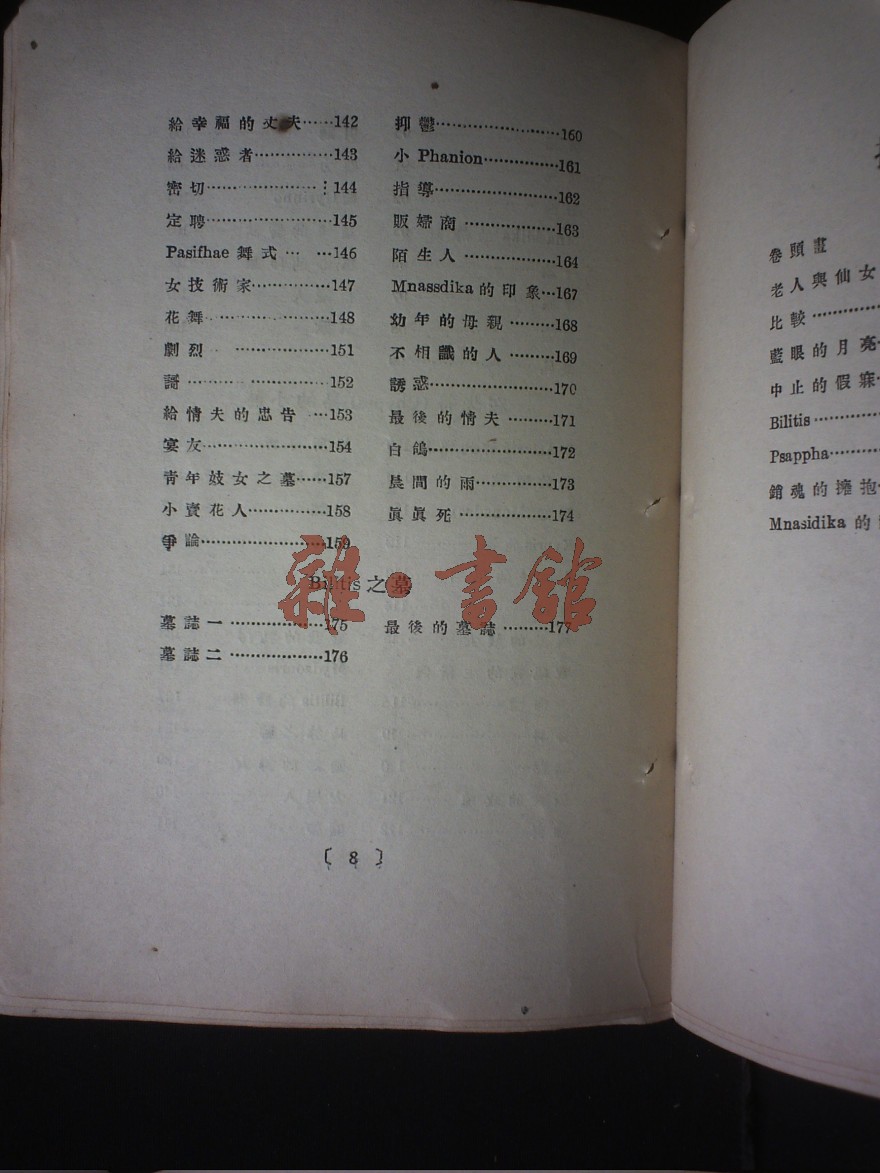 給幸福的丈夫……142
給迷惑者……………143
密切…………………⋮144
定聘…………………145
Pasifhae 舞式… …146
女技術家……………147
花舞…………………148
劇烈 ……………151
謌…  ………………152
給情夫的忠告 …153
宴友…………………154
青年妓女之墓……157
小賣花人……………158
爭論…………………159
抑鬱…………………160
小Phanion……………161
指導…………………162
販婦商………………163
陌生人………………164
Mnassdika的印象…167
幼年的母親………168
不相識的人………169
誘惑…………………170
最後的情夫………171
白鴿…………………172
晨間的雨……………173
眞眞死………………174
Bilitis之墓
墓誌一………………175
墓誌二………………176
最後的墓誌………177
〔 8 〕
雜·書舘
卷頭畫
老人與仙女
比較…………
藍眼的月亮
中止的假寐
Bilitis…………
Psappha……
銷魂的擁抱
Mnasidika 的